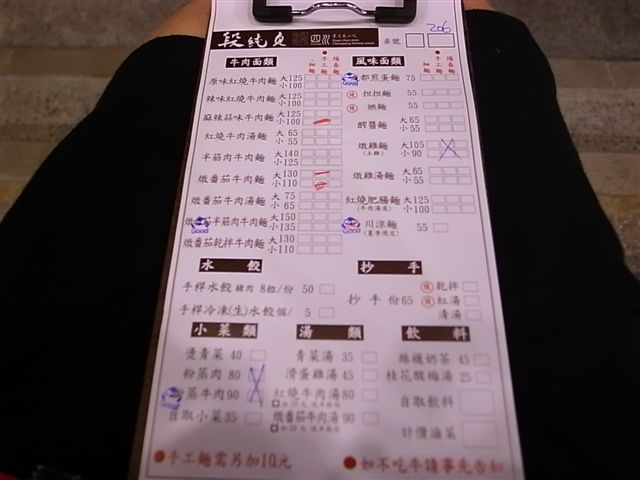 段純貞 四川
桌號
206
牛肉麵類 細麵 手工麵 陽春麵
原味紅燒牛肉麵 大125 小100
辣味紅燒牛肉麵 大125 小100
麻辣蒜味牛肉麵 大125 小100
紅燒牛肉湯麵 大65 小55
半筋肉牛肉麵 大140 小125
燉番茄牛肉麵 大130 小110
燉番茄牛肉湯麵 大75 小65
燉番茄半筋肉牛肉麵 大150 小135
燉番茄乾拌牛肉麵 大130 小110
風味麵類 細麵 手工麵 陽春麵
都煎蛋麵 75
辣 担担麵 55
辣 燃麵 55
醡醬麵 大65 小55
燉雞麵 (土雞) 大105 小90
燉雞湯麵 大65 小55
紅燒肥腸麵 (牛肉湯底) 大125 小100
Good 川涼麵 (夏季限定) 55
水餃
手桿水餃 豬肉 8粒/份 50
手桿冷凍(生)水餃 個/ 5
抄手
抄手 份65
辣 乾拌
辣 紅湯
清湯
小菜類
燙青菜 40
粉蒸肉 80
粉蒸牛肉 90
自取小菜 35
湯類
青菜湯 35
滑蛋雞湯 45
紅燒牛肉湯 80
燉番茄牛肉湯 90
飲料
絲襪奶茶 45
桂花酸梅湯 25
自取飲料
計價滷菜
●手工麵需另加10元
●如不吃牛請事先告知